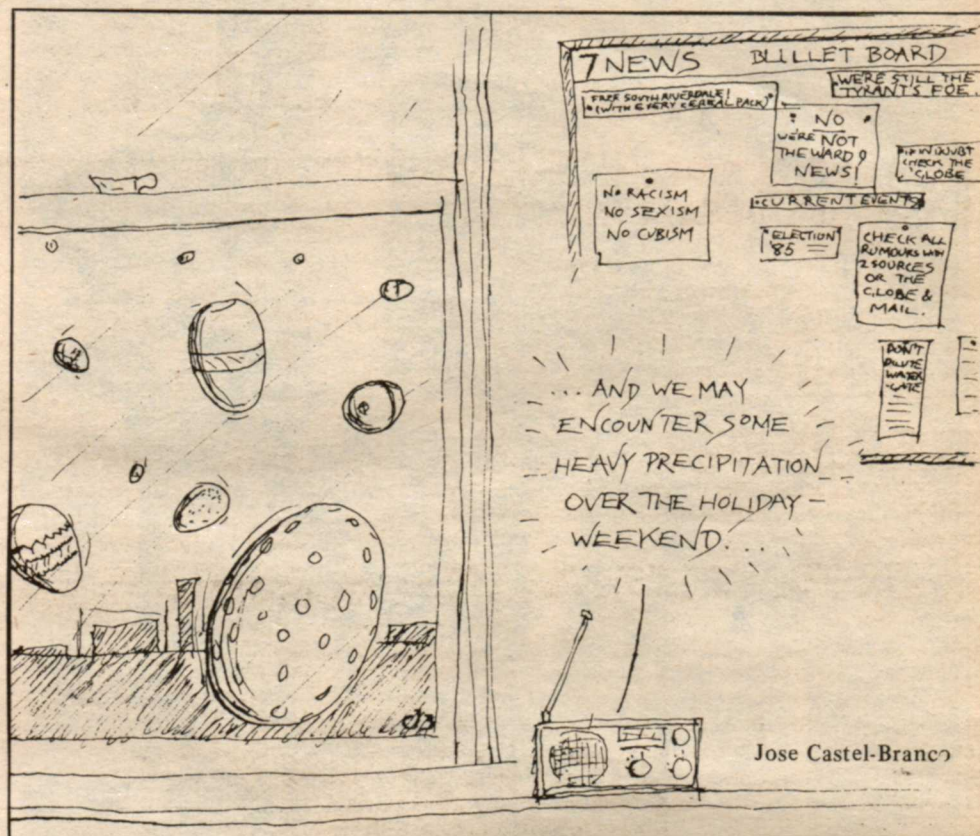 7 NEWS BULLET BOARD
WE'RE STILL THE
TYRANT'S FOE.
FREE SOUTH RIVERDALE!
(WITH EVERY CEREAL PACK)
NO
WE'RE NOT
THE WARD 9
NEWS!
IF IN DOUBT
CHECK THE
GLOBE
NO RACISM
NO SEXISM
NO CUBISM
CURRENT EVENTS
ELECTION
'85
CHECK ALL
RUMOURS WITH
2 SOURCES
OR THE
GLOBE &
MAIL.
DON'T
DILUTE
WATER
-GATE
... AND WE MAY
ENCOUNTER SOME
HEAVY PRECIPITATION
OVER THE HOLIDAY
WEEKEND....
Jose Castel-Branco